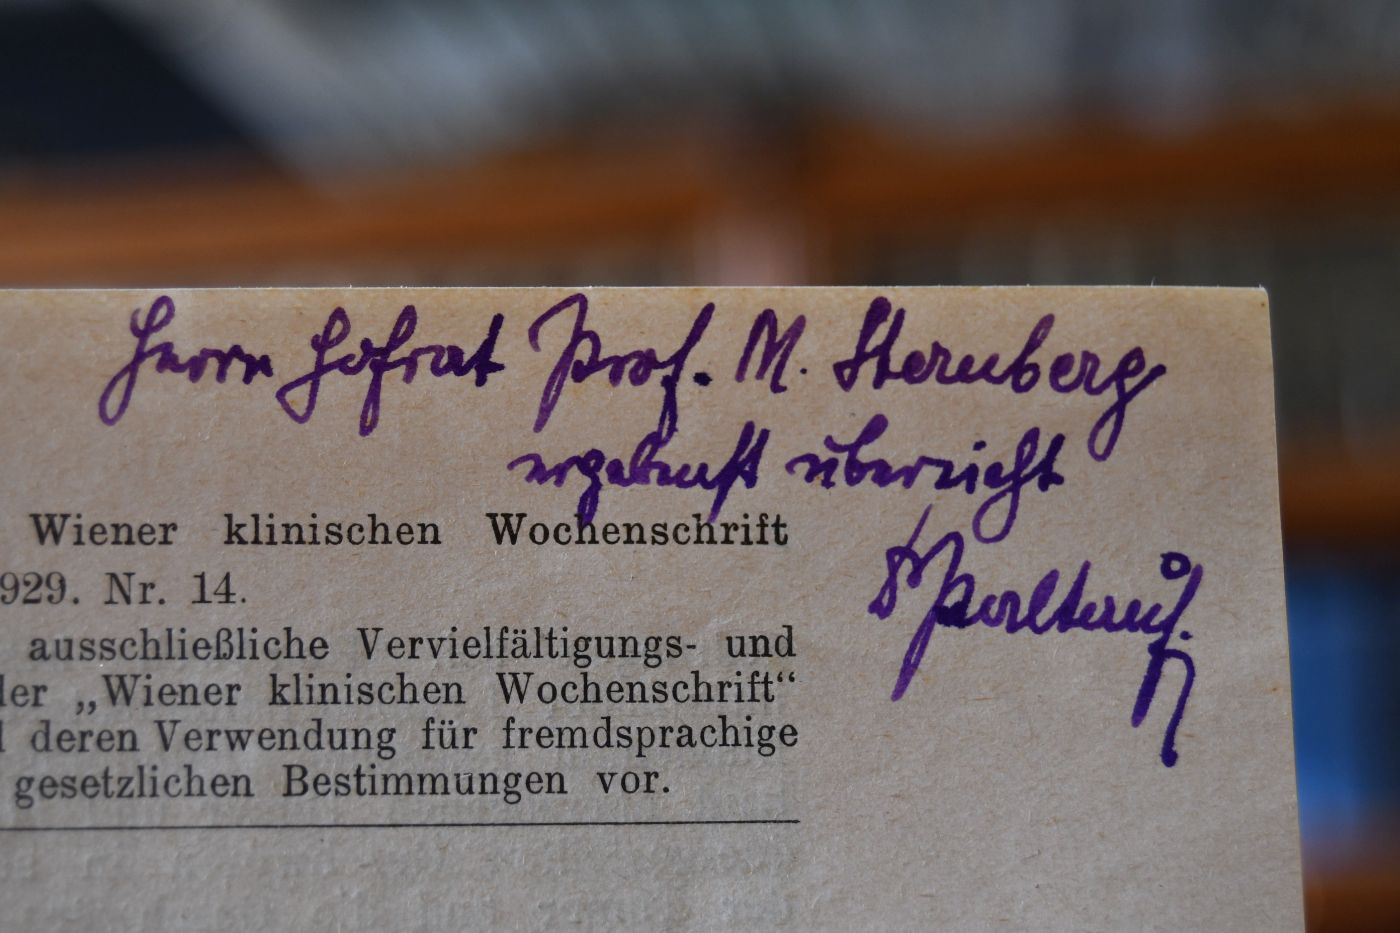 Herrn Hofrat Prof. M. Sternberg
ergebenst überreicht
Dr Paltauf.
Wiener klinischen Wochenschrift
929. Nr. 14.
ausschließliche Vervielfältigungs- und
der „Wiener klinischen Wochenschrift“
deren Verwendung für fremdsprachige
gesetzlichen Bestimmungen vor.